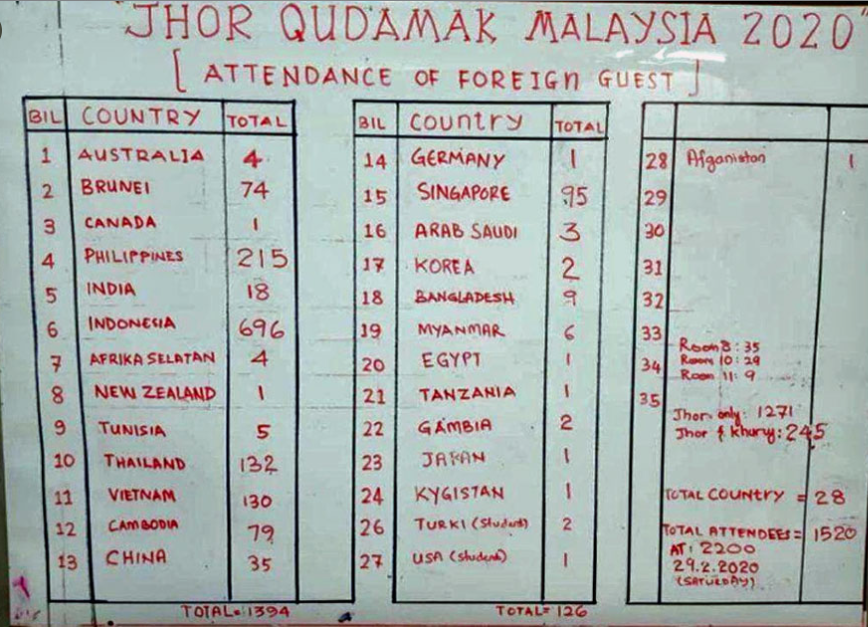 JHOR QUDAMAK MALAYSIA 2020
[ ATTENDANCE OF FOREIGN GUEST ]
BIL COUNTRY TOTAL
1 AUSTRALIA 4
2 BRUNEI 74
3 CANADA 1
4 PHILIPPINES 215
5 INDIA 18
6 INDONESIA 696
7 AFRIKA SELATAN 4
8 NEW ZEALAND 1
9 TUNISIA 5
10 THAILAND 132
11 VIETNAM 130
12 CAMBODIA 79
13 CHINA 35
TOTAL=1394
BIL Country TOTAL
14 GERMANY 1
15 SINGAPORE 95
16 ARAB SAUDI 3
17 KOREA 2
18 BANGLADESH 9
19 MYANMAR 6
20 EGYPT 1
21 TANZANIA 1
22 GAMBIA 2
23 JAPAN 1
24 KYGISTAN 1
26 TURKI (Student) 2
27 USA (Student) 1
TOTAL=126
28 Afganistan 1
29
30
31
32
33
34
35
Room 8: 35
Room 10: 29
Room 11: 9
Jhor only: 1271
Jhor & khuruj: 245
TOTAL COUNTRY = 28
TOTAL ATTENDEES= 1520
AT: 2200
29.2.2020
(SATURDAY)